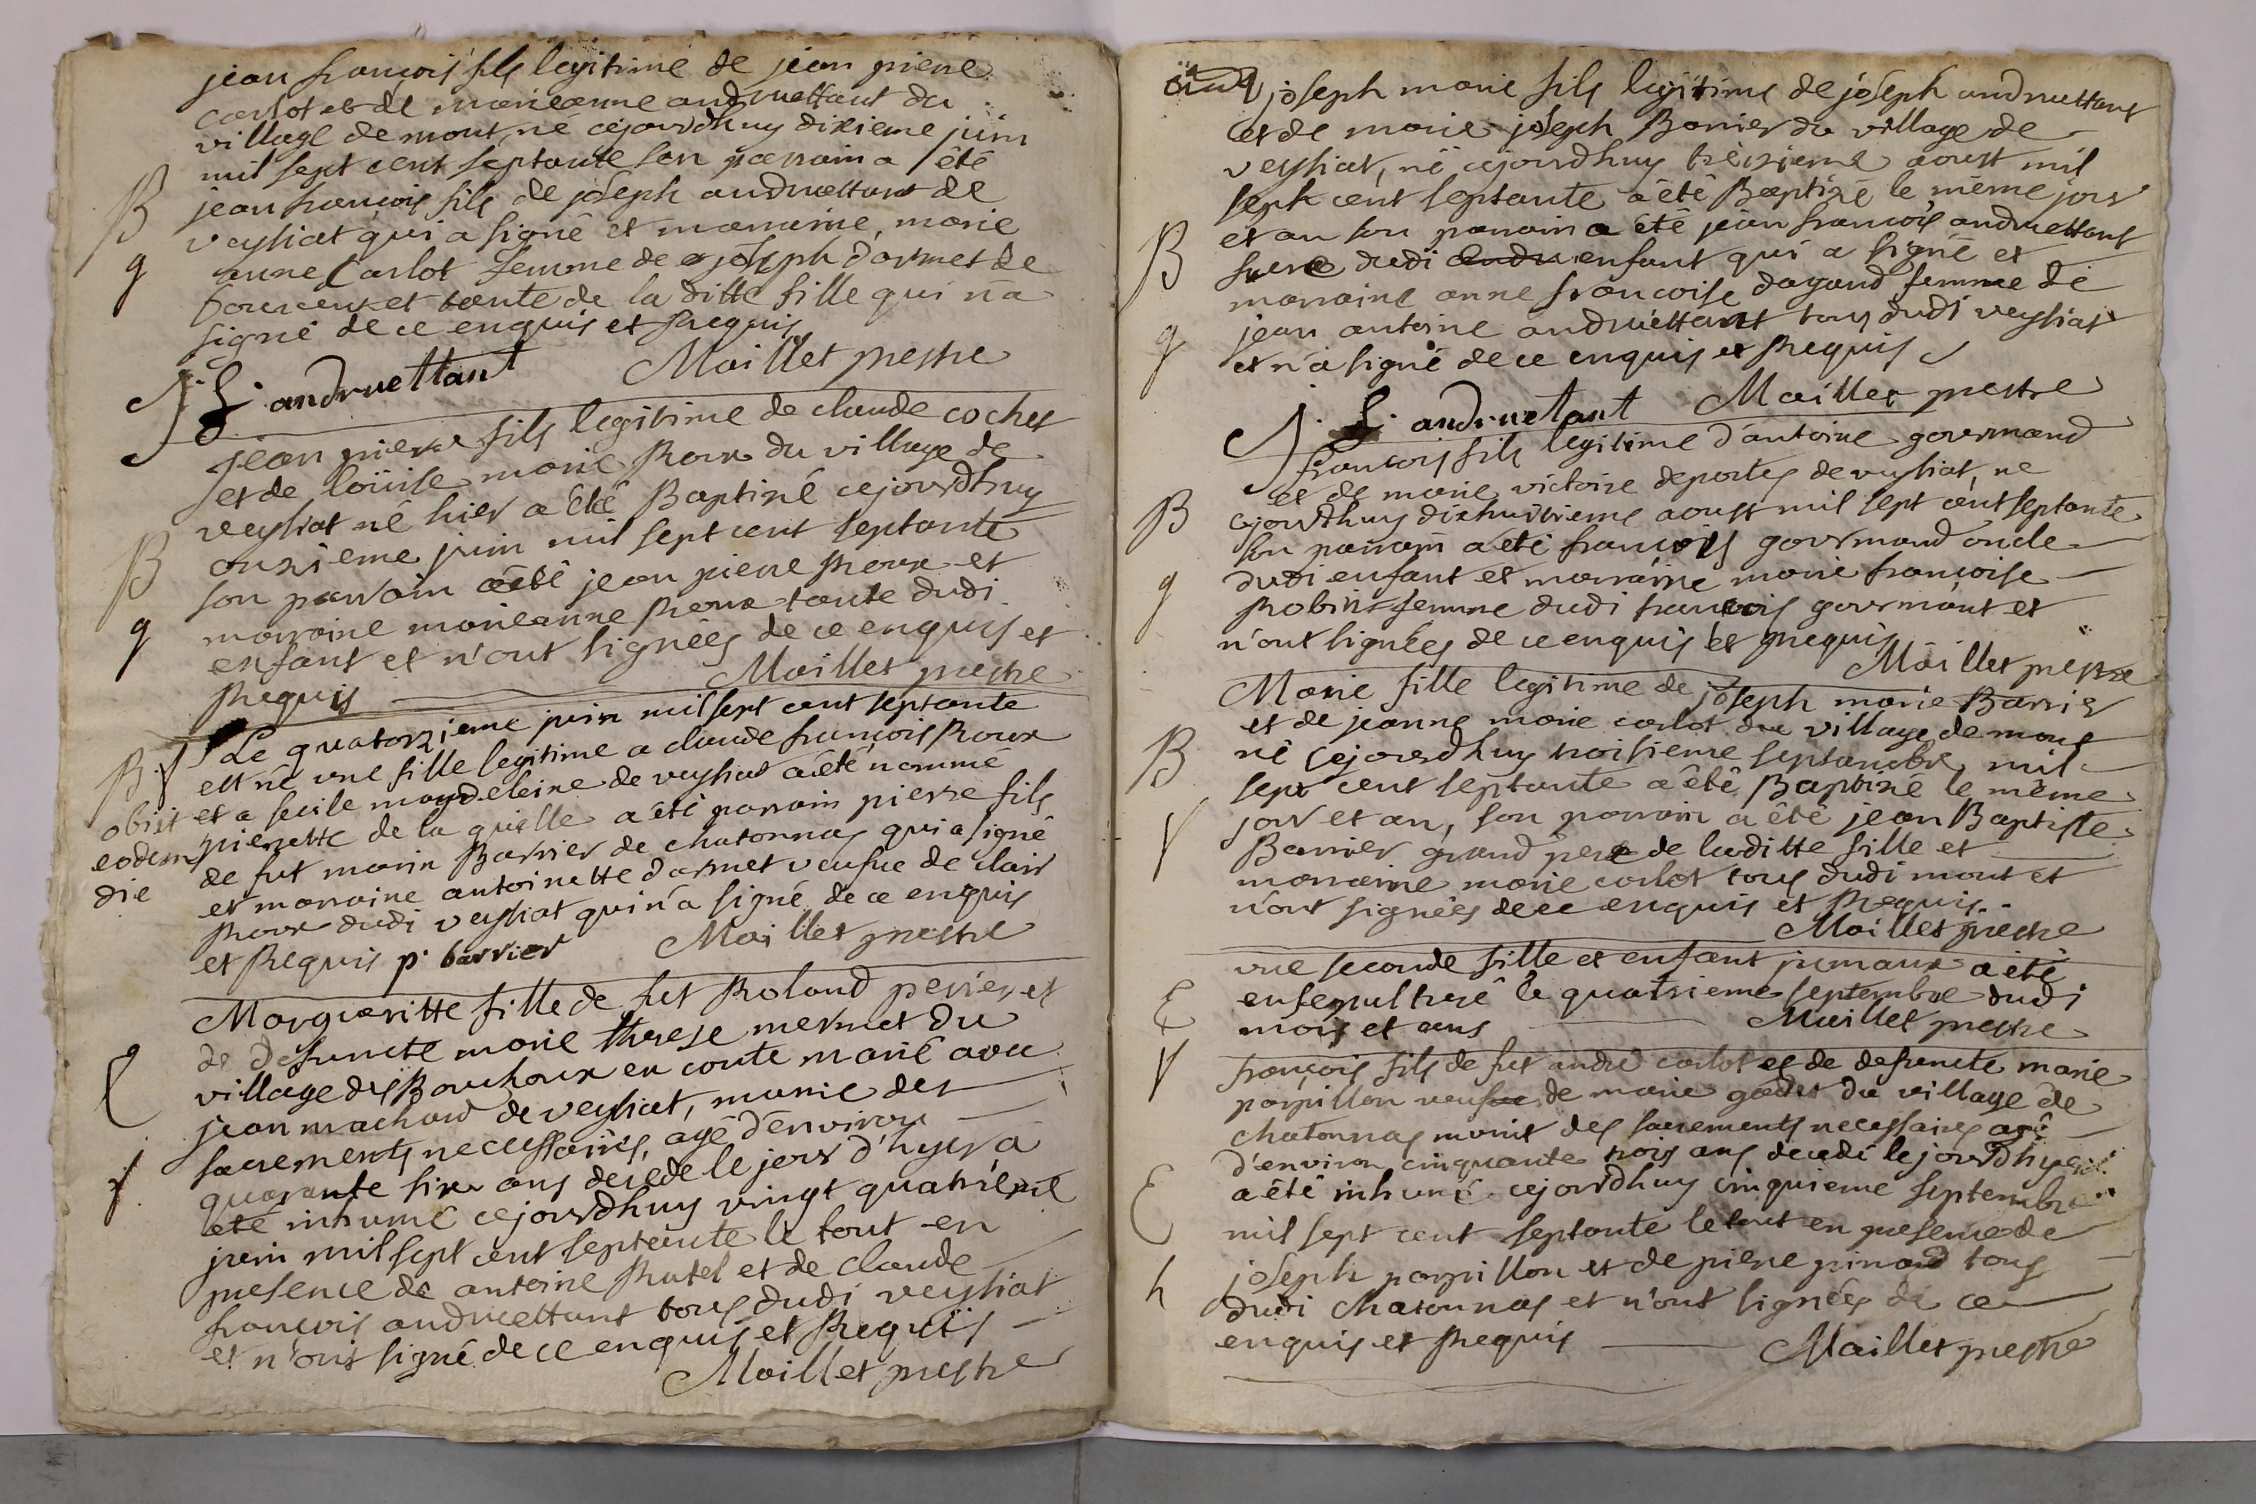 jean françois fils legitime de jean pierre
carlot et de marieanne andruettant du
village de mont, né cejourdhuy dixieme juin
mil sept cent septante son parrain a été
B jean françois fils de joseph andruettant de
veysiat qui a signé et marraine, marie
g anne Carlot femme de joseph darmet de
et tante de la ditte fille qui n'a
signé de ce enquis et Requis
J. f. andruettant Maillet prestre
jean pierre fils legitime de claude cochet
et de loüise marie Roux du village de
veysiat né hier a été Baptizé cejourdhuy
B onzieme juin mil sept cent septante
son parrain a été jean pierre Roux et
g marraine marieanne Roux tante dudi
enfant et n'ont signées de ce enquis et
Requis Maillet prestre
Le quatorzieme juin mil sept cent septante
B. f est né une fille legitime a claude françois Roux
obiit et a secile magdeleine de veysiat a été nommé
eodem pierrette de la quelle a été parrain pierre fils
die de fut marin Barrier de chatonnas qui a signé
et marraine antoinette darmet veufue de clair
Roux dudi veysiat qui n'a signé de ce enquis
et Requis p. barrier Maillet prestre
Margueritte fille de fut Roland perier et
de defuncte marie therese mermet du
village des Bouchoux en comté marié avec
jean machard de veysiat, munie des
sacrements necessaires, agé d'environ
f. quarante six ans decedé le jour d'hyer a
eté inhumé cejourdhuy vingt quatrieme
juin mil sept cent septante le tout en
presence de antoine Rutel et de claude
françois andruettant tous dudi veysiat
et n'ont signé de ce enquis et Requis
Maillet prestre
joseph marie fils legitime de joseph andruettant
et de marie joseph Barrier du village de
veysiat, né cejourdhuy treizieme aoust mil
sept cent septante a été Baptizé le même jour
B et an son parrain a été jean françois andruettant
frere dudi enfant qui a signé et
marraine anne françoise dagand femme de
g jean antoine andruettant tous dudi veysiat
et n'a signé de ce enquis et Requis
J. f. andruetant Maillet prestre
françois fils legitime d'antoine gourmand
et de marie victoire deportes de veysiat, né
B cejourdhuy dixhuitieme aoust mil sept cent septante
son parrain a été françois gourmand oncle
g dudi enfant et marraine marie françoise
Robin femme dudi françois gourmant et
n'ont signées de ce enquis et Requis
Maillet prestre
Marie fille legitime de joseph marie Barrier
et de jeanne marie carlot du village de mont
B né cejourdhuy troisieme septembre mil
sept cent septante a été Baptizé le même
jour et an, son parrain a été jean Baptiste
Barrier grand pere de laditte fille et
marraine marie carlot tous dudi mont et
n'ont signées de ce enquis et Requis
Maillet prestre
une seconde fille et enfant jumaux a été
E ensepulturé le quatrieme septembre dudi
mois et ans Maillet prestre
françois fils de fut andré carlot et de defuncte marie
parpillon veuf de marie godet du village de
chatonnas munit des sacrements necessaires agé
d'environ cinquante trois ans decedé le jourdhyer
E a été inhumé cejourdhuy cinquieme septembre
mil sept cent septante le tout en presence de
h joseph parpillon et de piere pinard tous
dudi chatonnas et n'ont signées de ce
enquis et Requis Maillet prestre